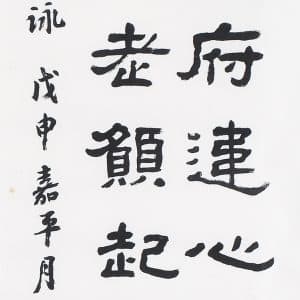 府運心
老顏起
詠戊申嘉平月